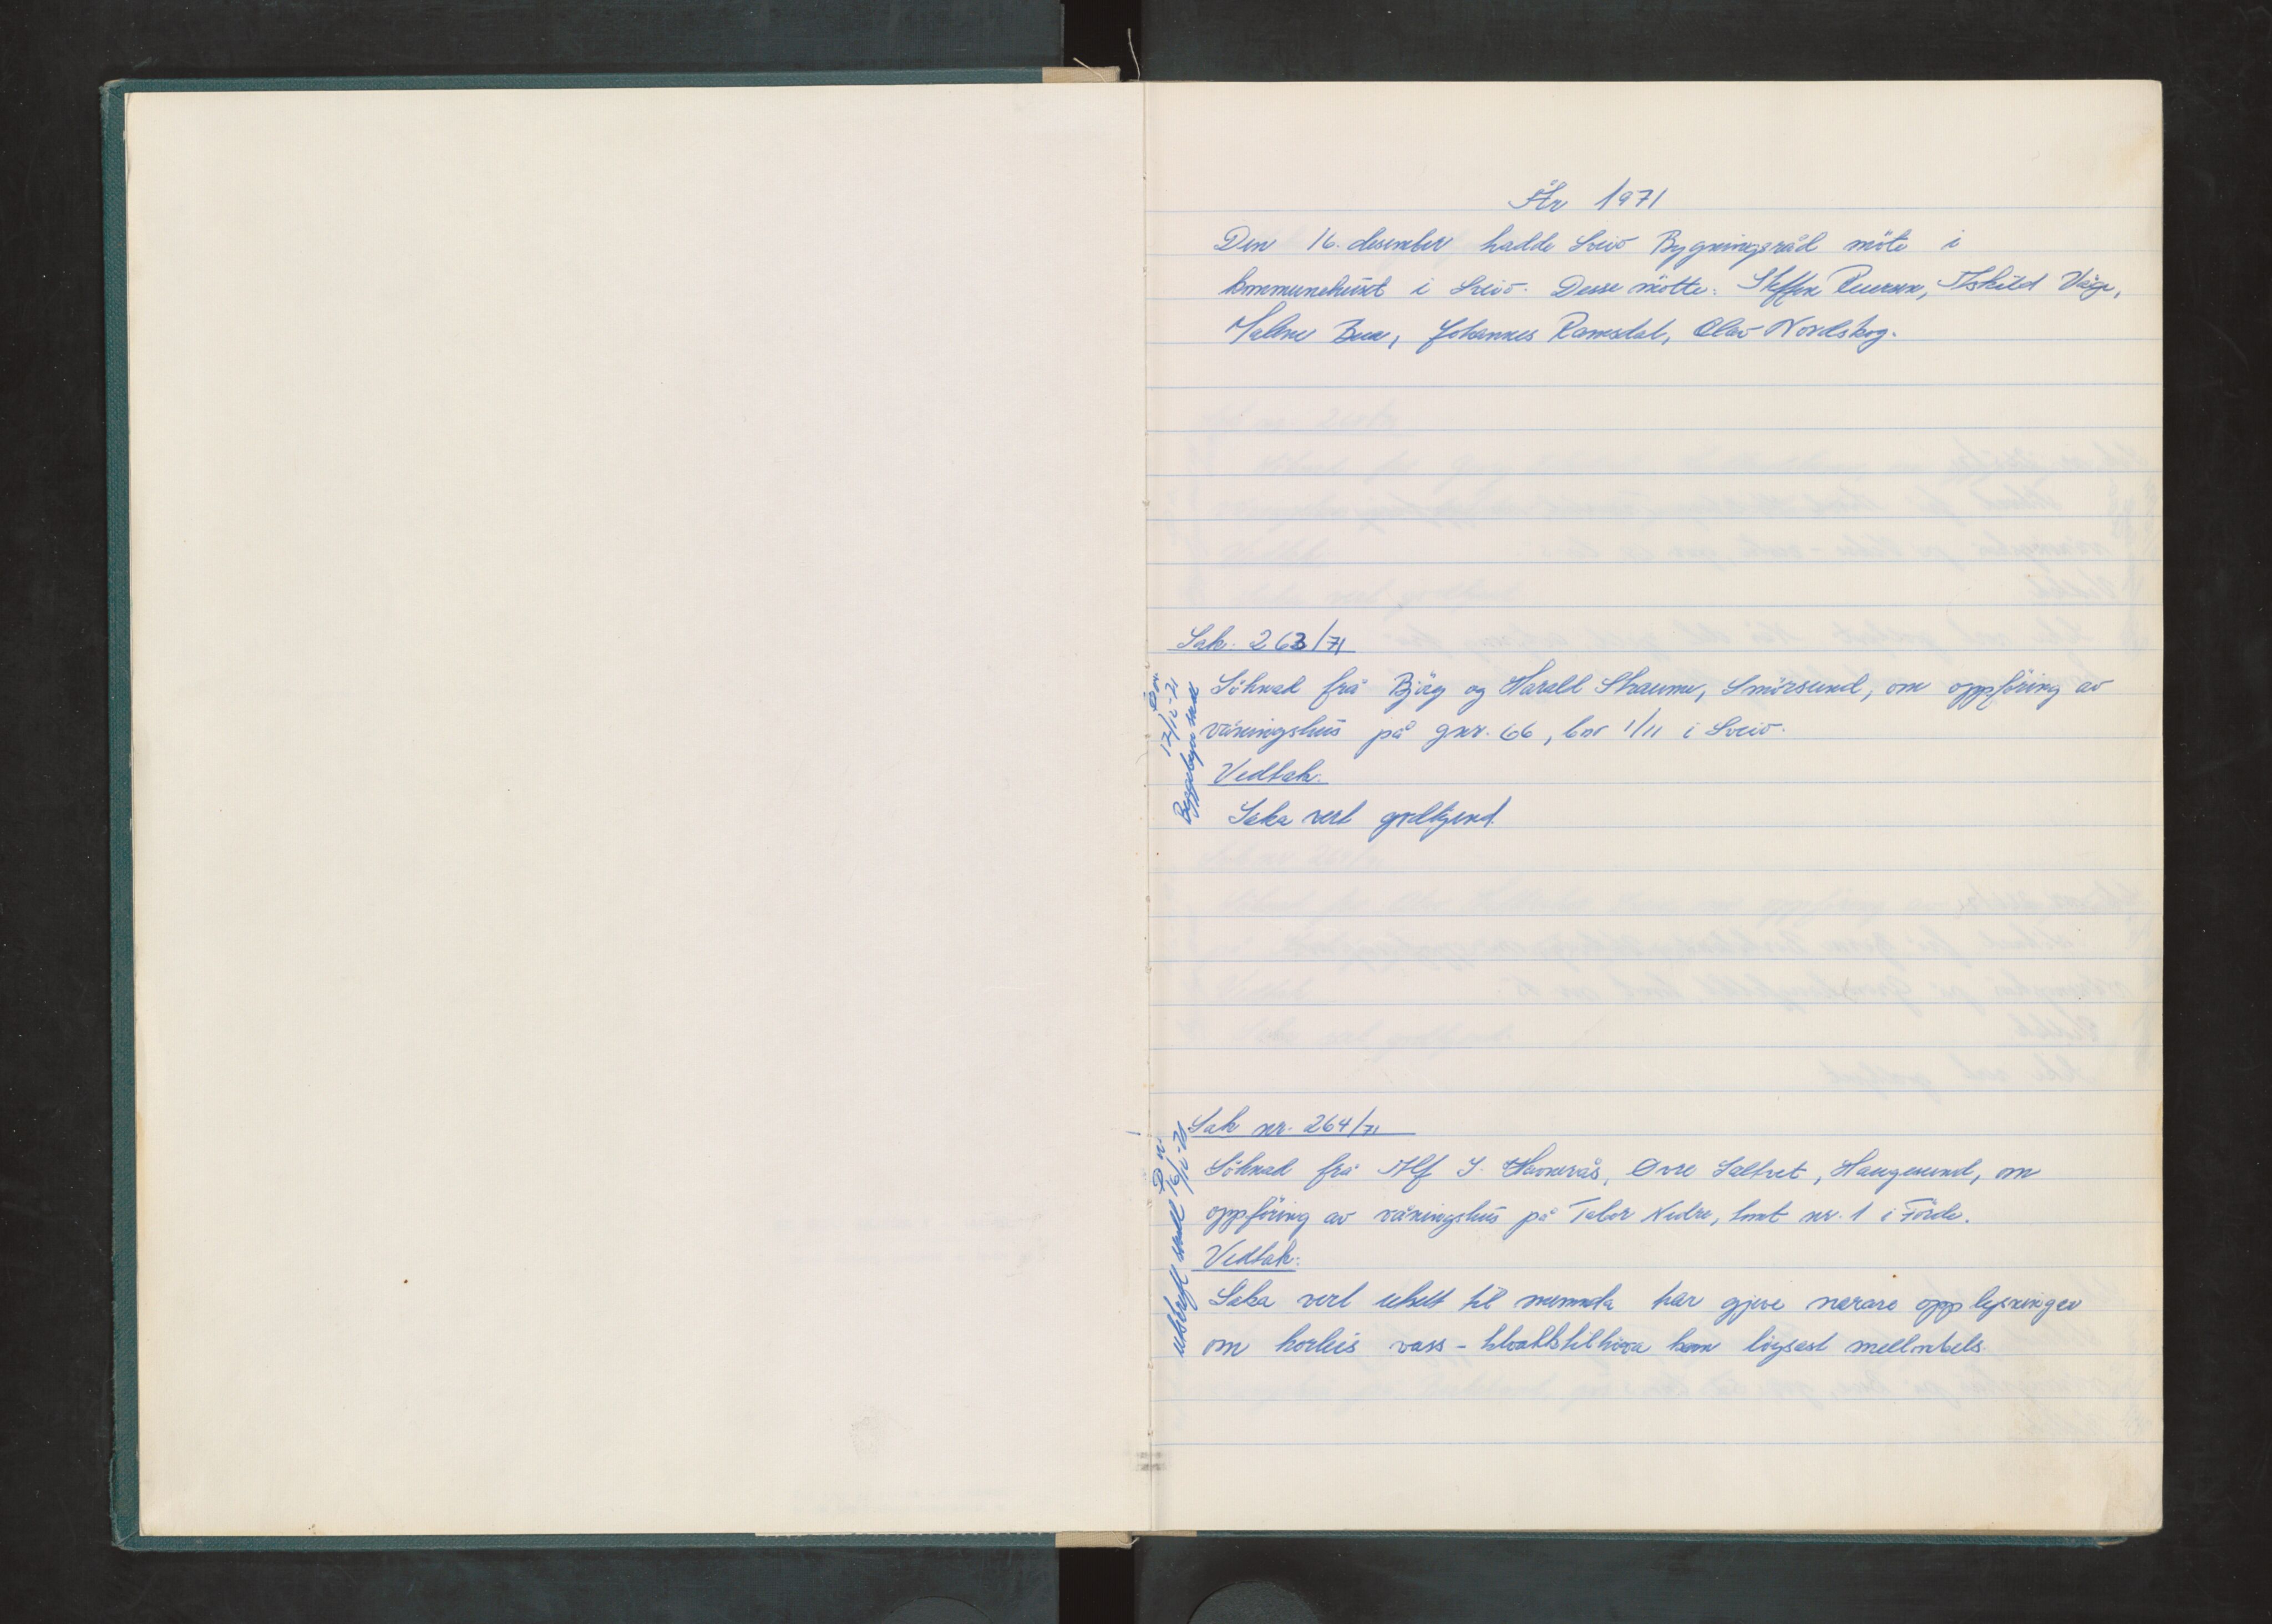 År 1971
Den 16. desember hadde Sveio Bygningsråd möte i
kommunehuset i Sveio. Desse mötte: Steffen Askild Våge,
Johannes Ramsdal, Olav Nordskog.
Sak. 263/71
Söknad frå Björg og Harald Straume, Smörsund, om oppföring av
våningshus på gnr. 66, bnr 1/11 i Sveio.
Vedtak:
Saka vert godkjend.
17/12-71
Byggeløyve sendt
Sak nr. 264/71
Söknad frå Alf J. Havnerås, Øvre Haugesund, om
oppföring av våningshus på Tabor Nedre, tomt nr. 1 i Förde.
Vedtak:
Saka vert utsett til nemnda har gjeve nærare opplysningar
om korleis vass- kloakktilhöva kan löysast mellombels.
16/12-71
sendt